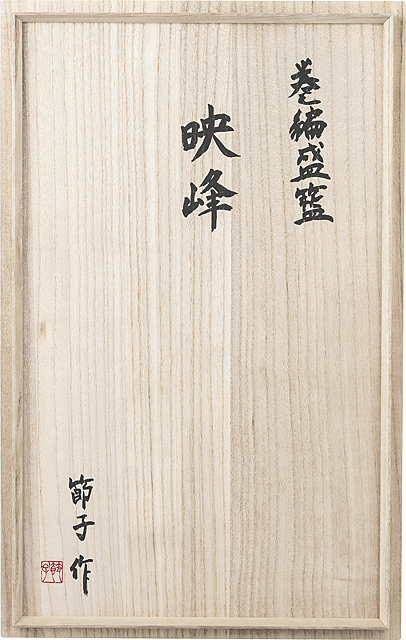 巻編盛籃
映峰
節子作